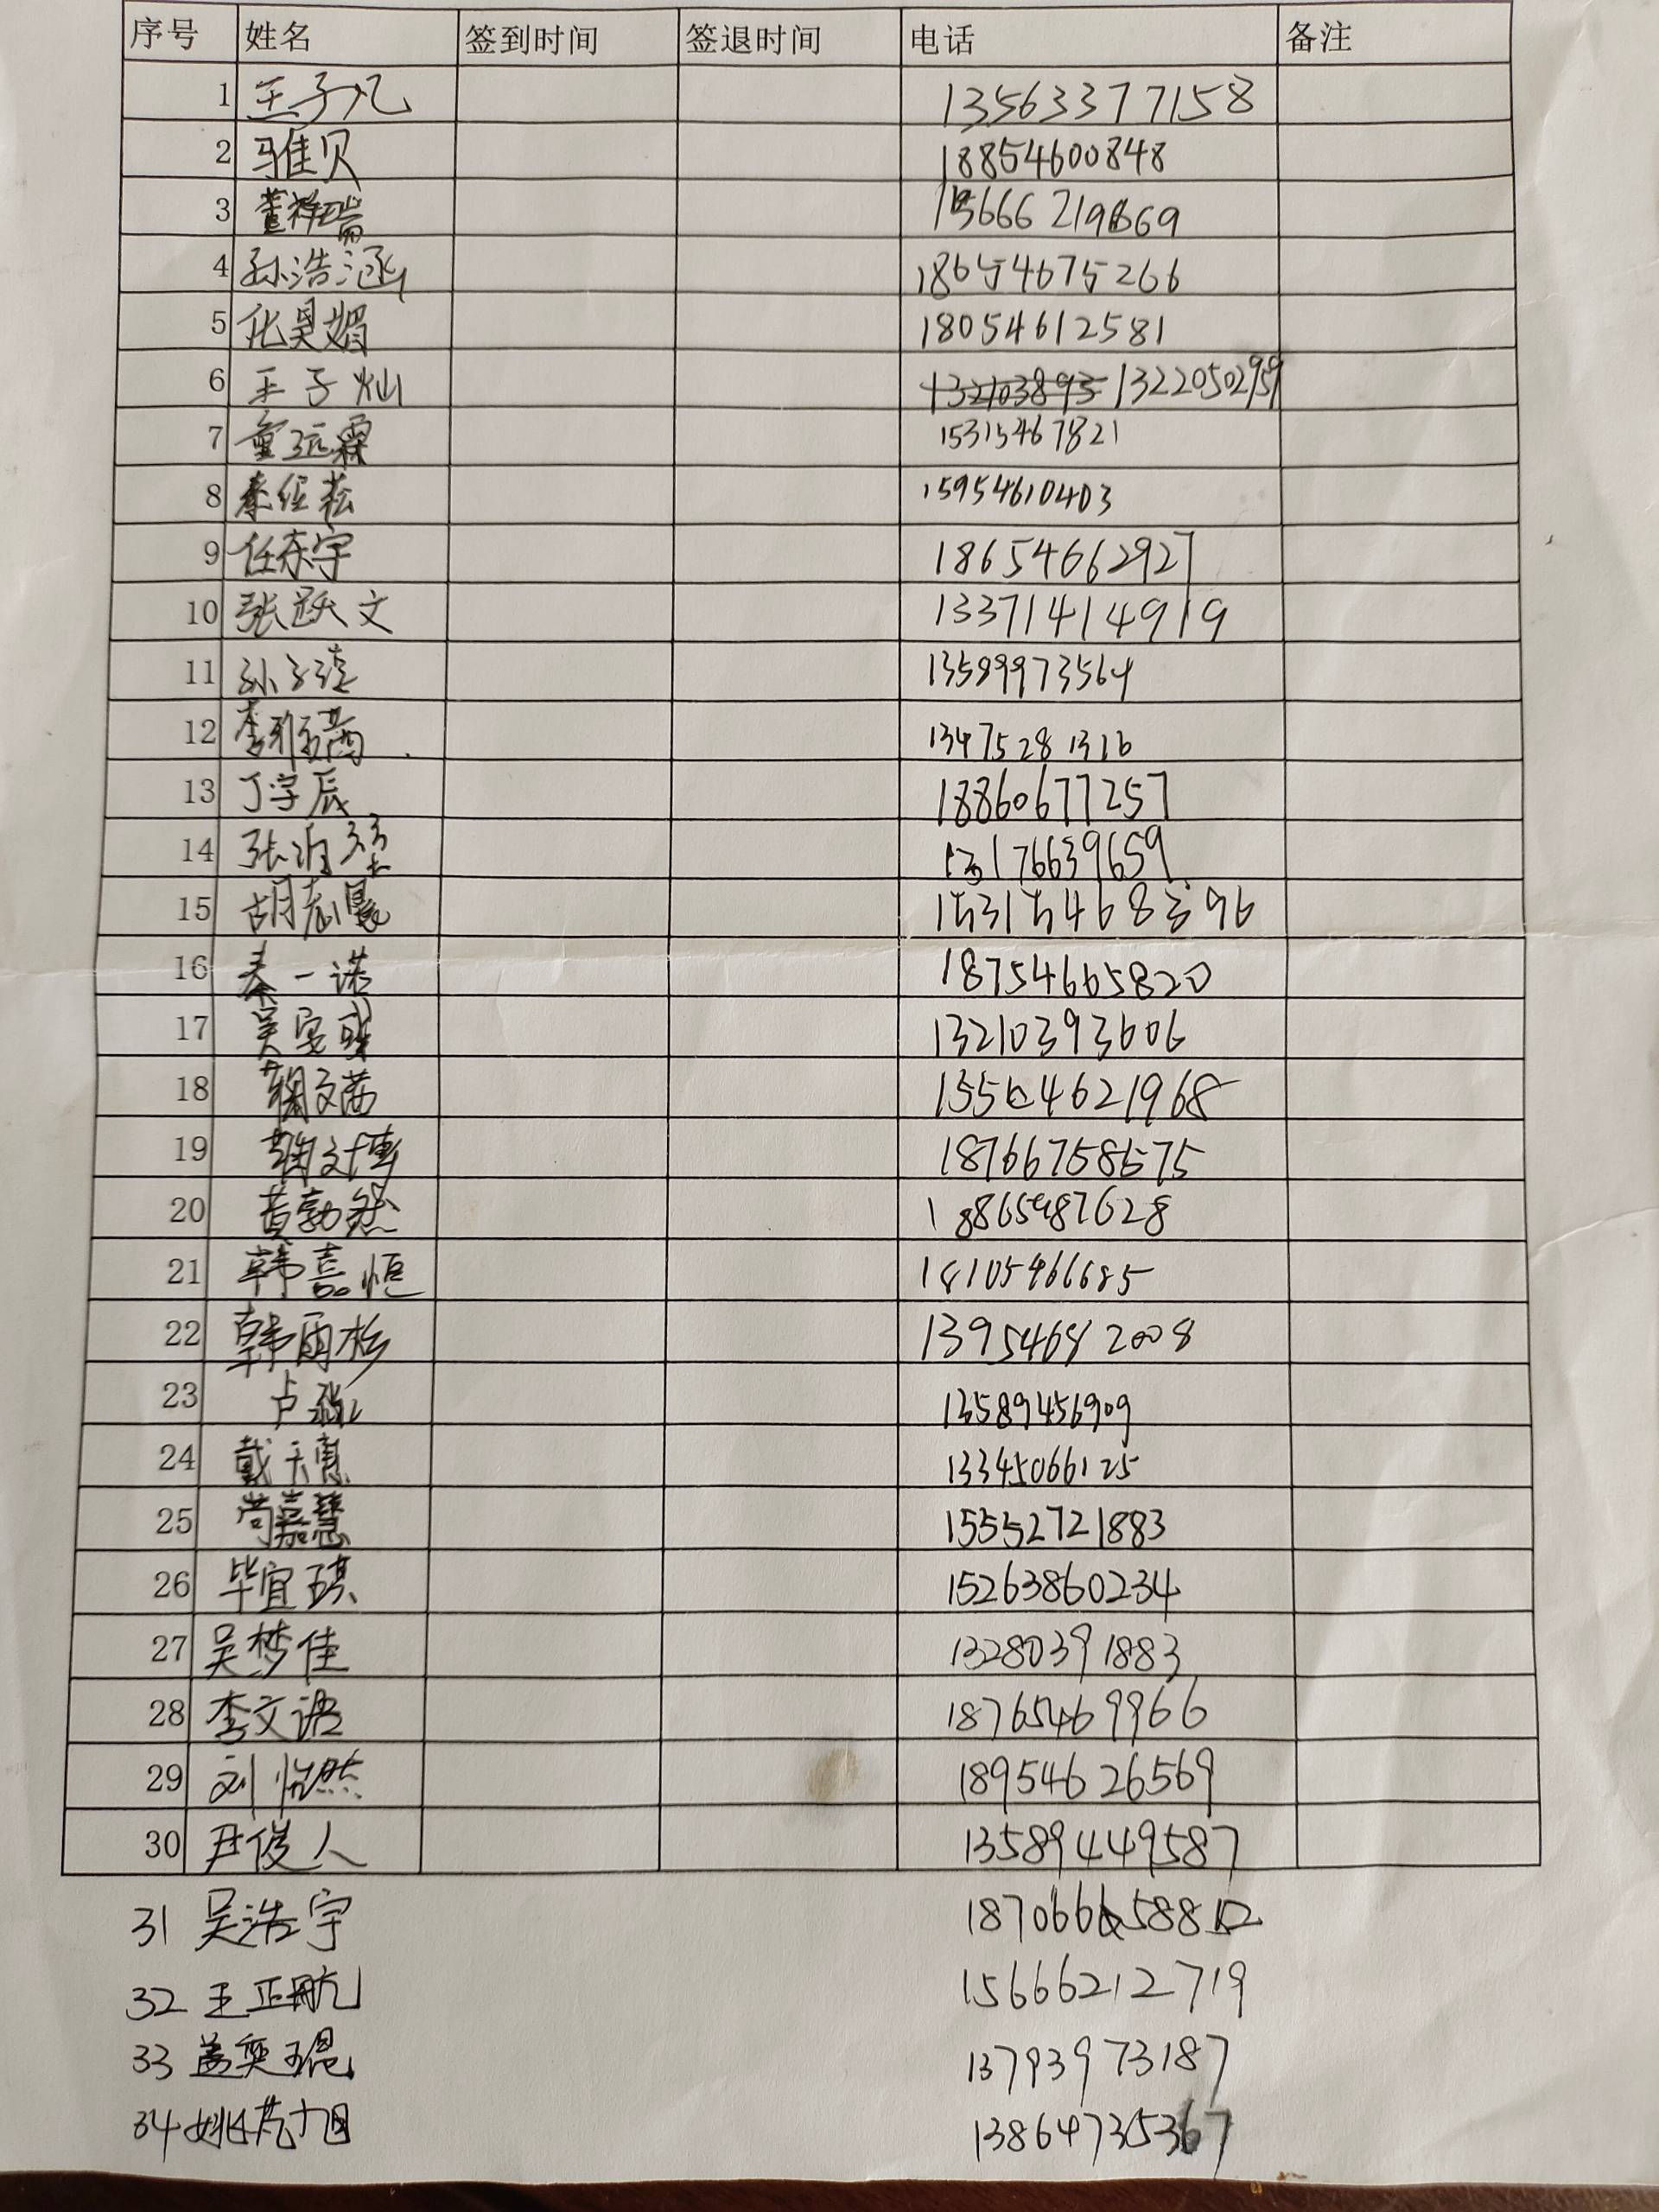 序号 姓名 签到时间 签退时间 电话 备注
1 王子凡 13563377158
2 马佳贝 18854600848
3 董祥瑞
4 孙浩涵 18654675266
5 化昊媚 18054612581
6 王子灿 13220502959
7 童远霖 15315467821
8 秦经菘 15954610403
9 任东宇 18654662927
10 张跃文 13371414919
11 孙 13589973564
12 李雅菡 13475281316
13 丁宇辰 18860677257
14 张 13176639659
15 胡 15315468396
16 秦一诺 18754665820
17 吴 13210393606
18 鞠文茜
19 鞠文博 18766758575
20 黄勃然 18865487628
21 韩嘉恒
22 韩雨杉 13954682008
23 卢 13589456909
24 戴天惠 13345066125
25 苟嘉慧 15552721883
26 毕宜琪 15263860234
27 吴梦佳 13280391883
28 李文语 18765469966
29 刘悦然 18954626569
30 尹俊人 13589449587
31 吴浩宇
32 王正航 15666212719
33 盖奕琨 13793973187
34 姚 旭 13864735367